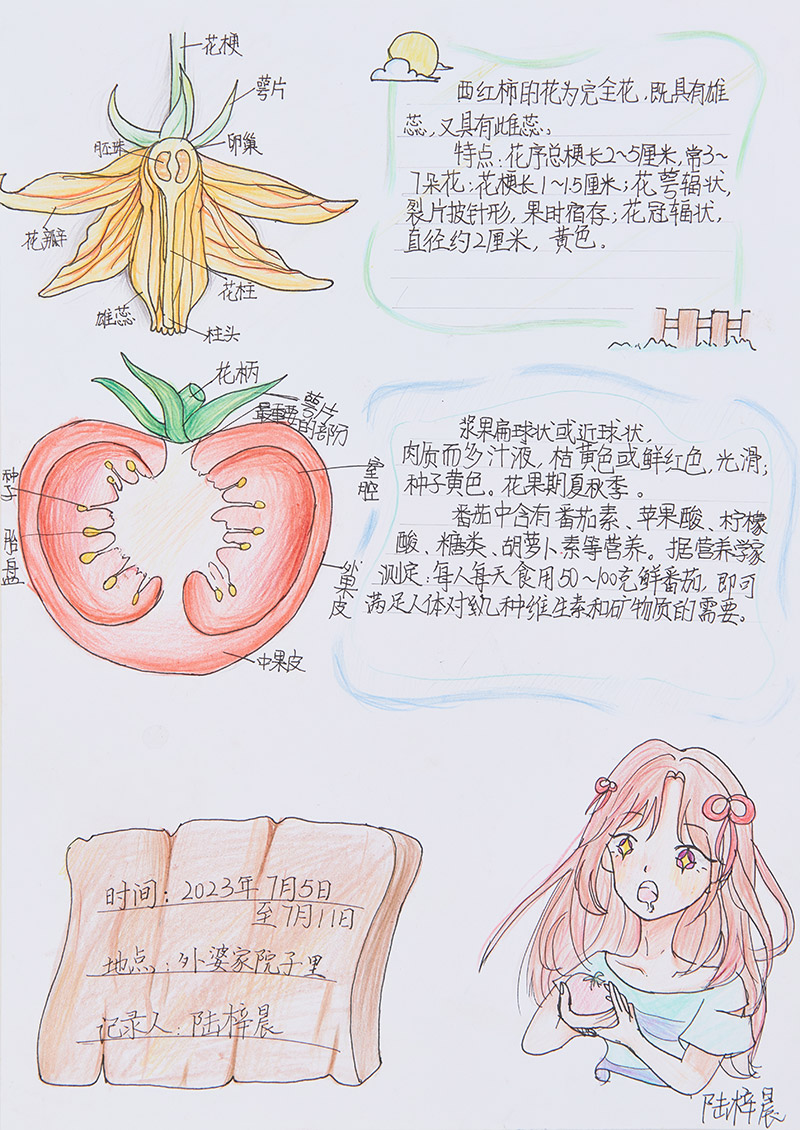 花梗
萼片
胚珠
卵巢
花瓣
花柱
雄蕊
柱头
西红柿的花为完全花，既具有雄
蕊，又具有雌蕊。
特点：花序总梗长2～5厘米，常3～
7朵花：花梗长1～1.5厘米；花萼辐状，
裂片披针形，果时宿存；花冠辐状，
直径约2厘米，黄色。
花柄
萼片
最重要的部分
种子
室腔
胎盘
外果皮
中果皮
浆果扁球状或近球状，
肉质而多汁液，桔黄色或鲜红色，光滑；
种子黄色。花果期夏秋季。
番茄中含有番茄素、苹果酸、柠檬
酸、糖类、胡萝卜素等营养。据营养学家
测定：每人每天食用50～100克鲜番茄，即可
满足人体对幾几种维生素和矿物质的需要。
时间：2023年7月5日
至7月11日
地点：外婆家院子里
记录人：陆梓晨
陆梓晨